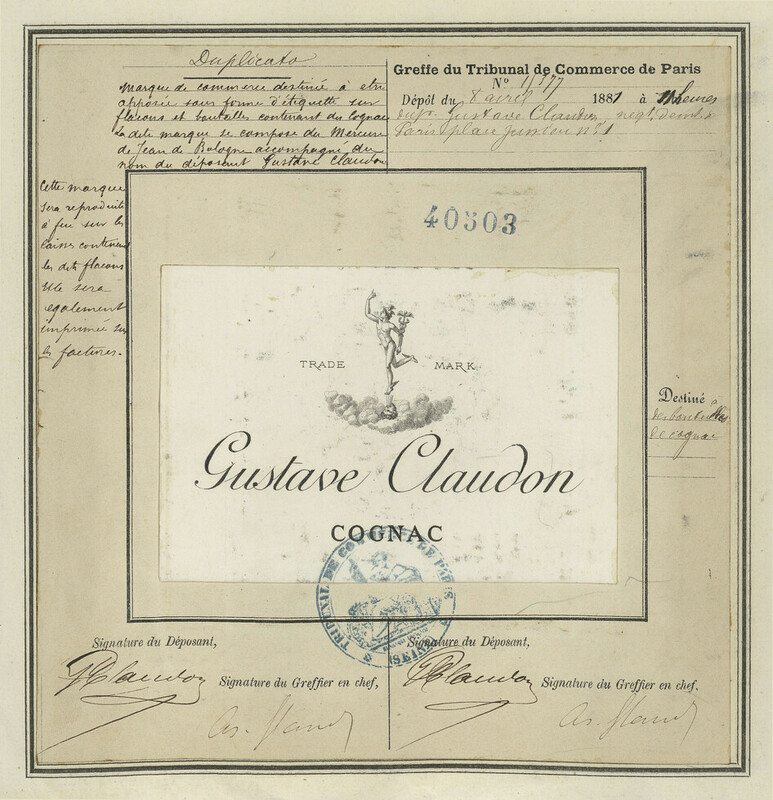 Duplicato
Marque de commerce destinée à etre
apposée sous forme d'étiquette sur
flacons et bouteilles contenant du Cognac
La dite marque se compose du Mercure
de Jean de Bologne accompagné du
nom du déposant Gustave Claudon
Cette marque
sera reproduite
à feu sur les
caisses contenant
les dits flacons
Elle sera
également
imprimée sur
les factures.
Greffe du Tribunal de Commerce de Paris
Nº
Dépôt du 8 avril 1881 à heures
Gustave Claudon, negt, demt à
Paris place
40503
TRADE MARK
Gustave Claudon
COGNAC
TRIBUNAL DE COMMERCE DE PARIS
Destiné à
des bouteilles
de cognac
Signature du Déposant,
GClaudon
Signature du Greffier en chef,
Signature du Déposant,
GClaudon
Signature du Greffier en chef.